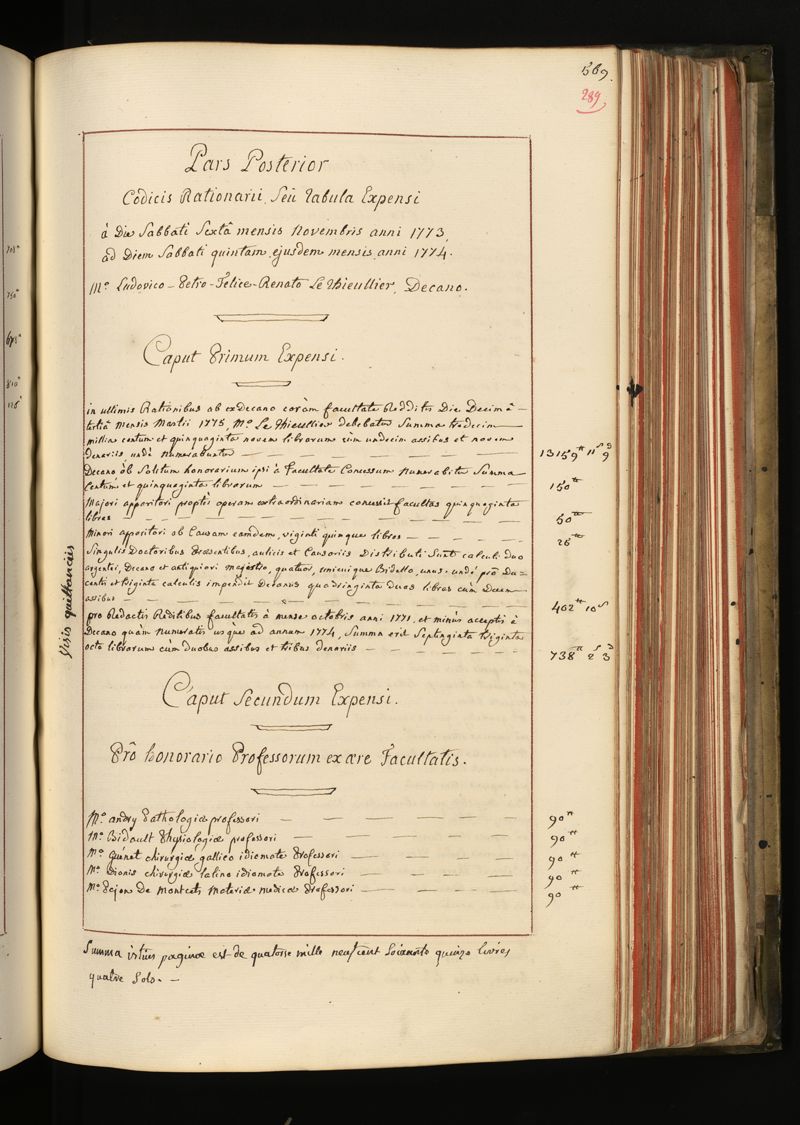 569.
289
Pars Posterior
Codicis Rationarii, Seü Tabula Expensi
à Die Sabbati Sextâ mensis Novembris anni 1773,
ad Diem Sabbati quintam ejusdem mensis anni 1774.
M.o Ludovico-Petro-Felice-Renato Le Thieullier, Decano.
Caput Primum Expensi.
in ultimis Rationibus ab exDecano coràm facultate Redditis Die Decimâ-
tertiâ mensis Martii 1775, M.o Le Thieullier debebatur Summa tredecim
millia centum et quinquaginta novem librorum cùm undecim assibus et novem
denariis, undè Numerabuntur 13159 tt 11 s 9 d
Decano ob Solitum honorarium ipsi à Facultate Concessum Numerabitur Summa
Centum et quinquaginta librarum 150 tt
Majori apparitori proptèr operam extraordinariam concessit facultas quinquaginta
libras 50 tt
Minori apparitori ob Causam eamdem, viginti quinque libras 25 tt
Singulis Doctoribus Praesentibus, aulicis et Causariis Distributi Sunt calculi duo
argentei, Decano et antiquiori magistro, quatuor, unicuique Bidello, unus: undè prò Du-
centis et triginta calculis impendit Decanus quadringinta duas libras cùm Decem
assibus 402 tt 10 s
pro Redactis Reditibus facultatis à mense octobris anni 1771, et minùs acceptis à
Decano quàm Numeratis usque ad annum 1774, Summa erit Septinginta triginta
octo librarum cum duobus assibus et tribus denariis 738 tt 2 s 3 d
Visis quittanciis
Caput Secundum Expensi.
Prô honorario Professorum ex aere Facultatis.
M.o andry Pathologiae professori 90 tt
M.o Bidault Physiologiae professori 90 tt
M.o Guénet chirurgiae gallico idiomate Professori 90 tt
M.o Dionis chirurgiae latino idiomate Professori 90 tt
M.o Pajon De Moncets Materiae medicae Professori 90 tt
Summa istius paginae est de quatorse mille neuf cent Soixante quinze livres
quatre Sols.